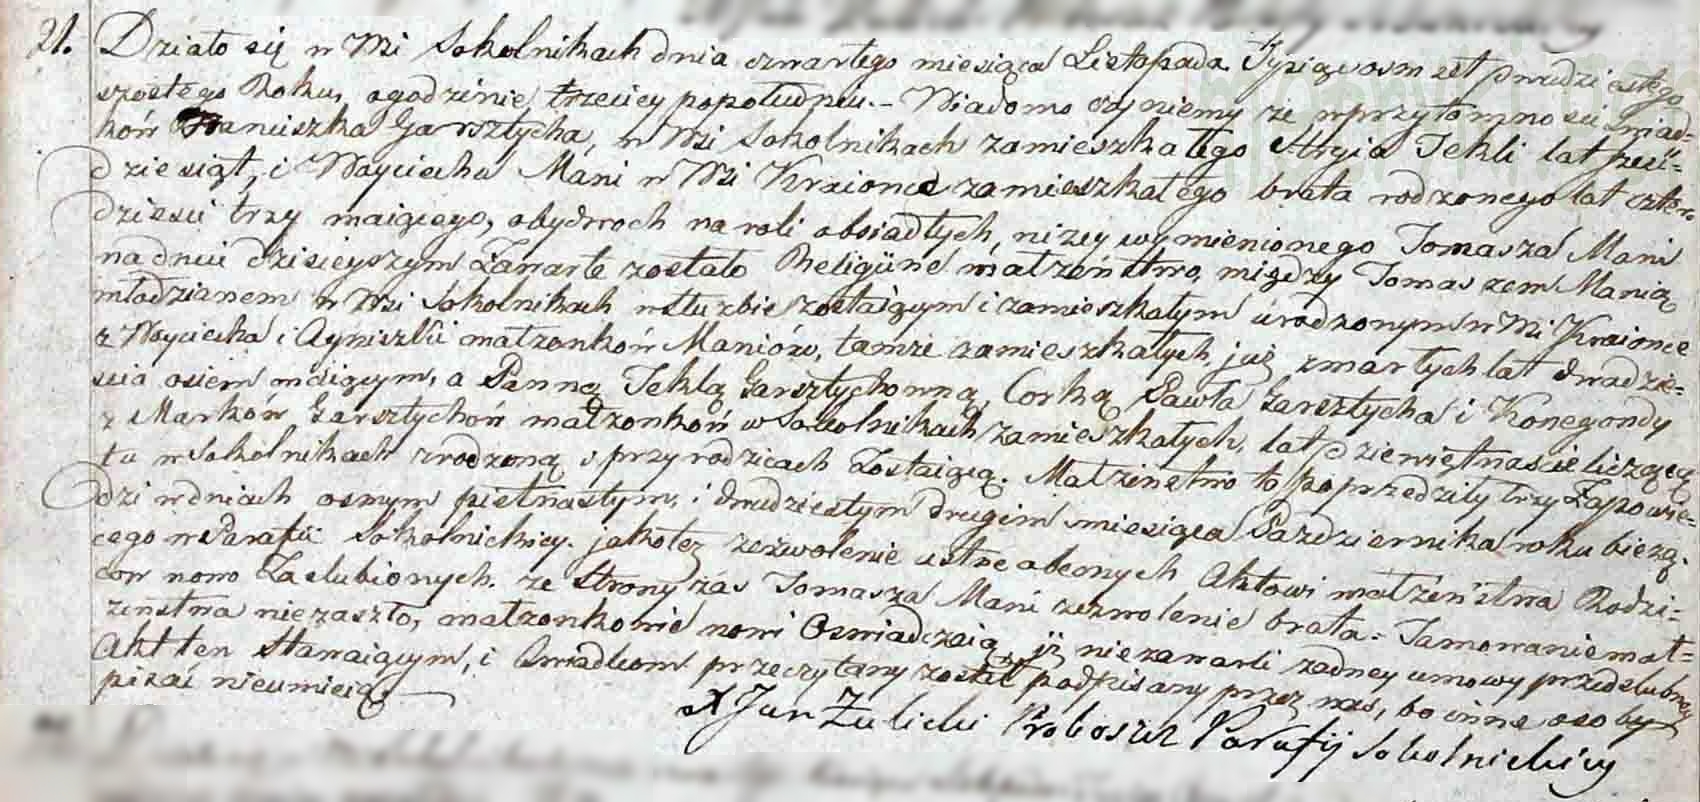 21. Działo się w Wsi Sokolnikach dnia czwartego miesiąca Listopada Tysiąc osm set dwudziestego
szostego Roku, ogodzinie trzeciey popołudniu. – Wiadomo czyniemy że wprzytomnosci swiad=
ków Franciszka Garsztycha, w Wsi Sokolnikach zamieszkałego Stryia Tekli lat sześć=
dziesiąt, i Woyciecha Mani w Wsi Kraioncе zamieszkałego brata rodzonego lat cztero
dziesci trzy maiącego, obydwoch na roli obsiadłych, niżey wymienionego Tomasza Mani
na dniu dzisieyszym Zawarte zostało Religiine małżeństwo, między Tomaszem Manią
młodzianem w Wsi Sokolnikach wsłużbie zostaiącym i zamieszkałym urodzonym w Wsi Kraionce
z Woyciecha i Agniszki małżonków Maniów, tamże zamieszkałych, już zmarłych lat dwadzie=
scia osiem maiącym, a Panną Teklą Garsztychowną, Corką Pawła Garsztycha i Konegondy
z Marków Garsztychów małżonków w Sokolnikach zamieszkałych, lat dziewiętnascie liczącą
tu w Sokolnikach urodzoną i przy rodzicach Zostaiącą. Małżenstwo to poprzedziły trzy Zapowie=
dzi w dniach osmym piętnastym, i dwudziestym drugim miesiąca Pazdziernika roku bieżą=
cego w Parafii Sokolnickiey. jakoteż zezwolenie ustne obecnych Aktowi małżeństwa Rodzi=
cow nowo Zaslubionych. ze Strony zas Tomasza Mani zezwolenie brata. Tamowanie mał=
żenstwa niezaszło, małżonkowie nowi Oswiadczaią, iż niezawarli żadney umowy przedslubney
Akt ten Stawaiącym, i Swiadkom przeczytany został podpisany przez nas, bo inne osoby
pisać nieumieią.
X Jan Żulicki Proboszcz Parafij Sokolnickiey